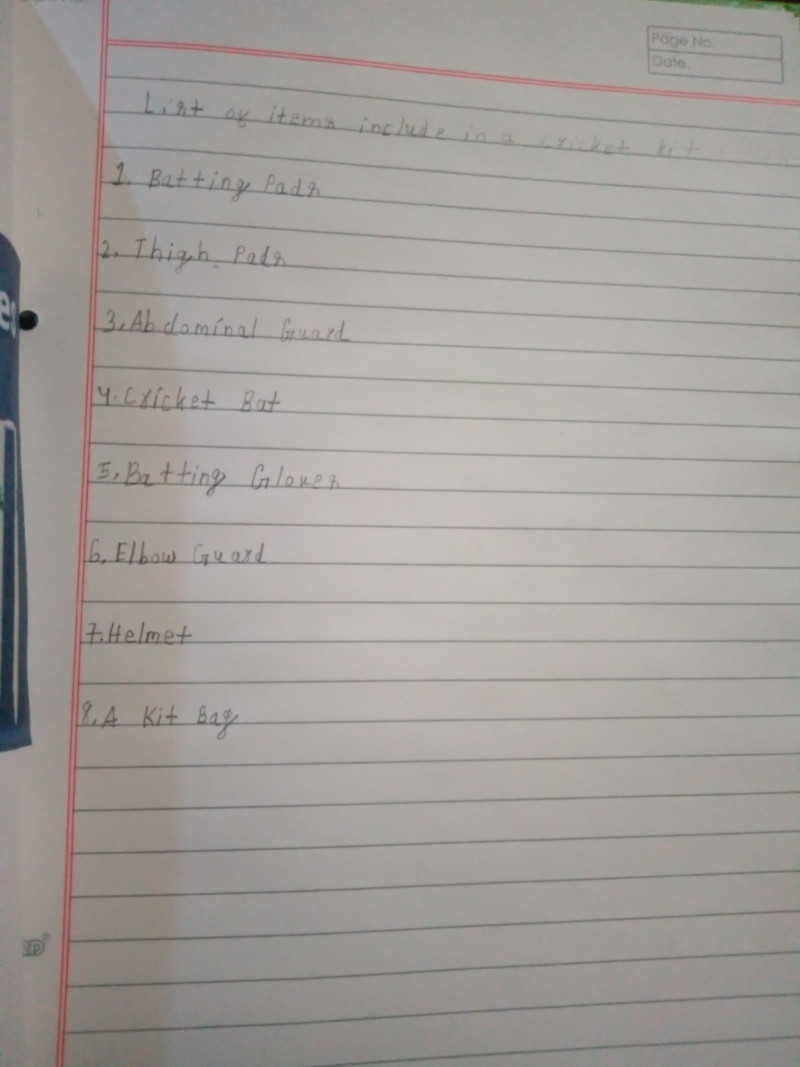 Page No.
Date.
List of items include in a cricket kit
1. Batting Pads
2. Thigh Pads
3. Abdominal Guard
4. Cricket Bat
5. Batting Gloves
6. Elbow Guard
7. Helmet
8. A Kit Bag